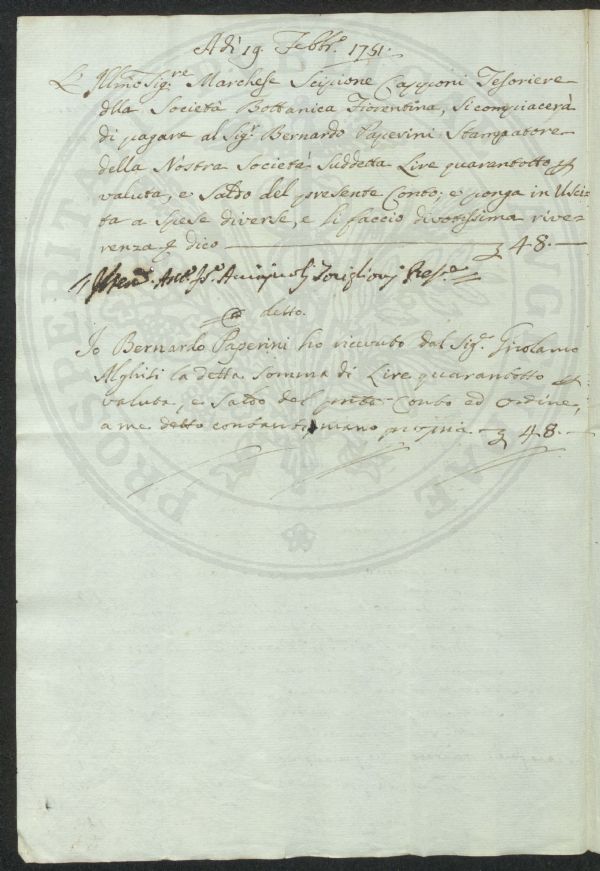 Adì 19. Febb.º 1751.
L' Illmo Sig.re Marchese Scipione Capponi Tesoriere
della Società Bottanica Fiorentina, si compiacerà
di pagare al Sig.r Bernardo Paperini Stampatore
della Nostra Società Suddetta Lire quarantotto p
valuta, e Saldo del presente Conto; e ponga in Usci-
ta a Spese diverse, e li faccio divotissima rive-
renza p dico 48.
detto.
Io Bernardo Paperini ho ricevuto dal Sig.r Girolamo
la detta Somma di Lire quarantotto p
valuta, e Saldo del pnte Conto ed ordine,
a me detto contanti mano propria 48.
PROSPERITATI PUBLICAE